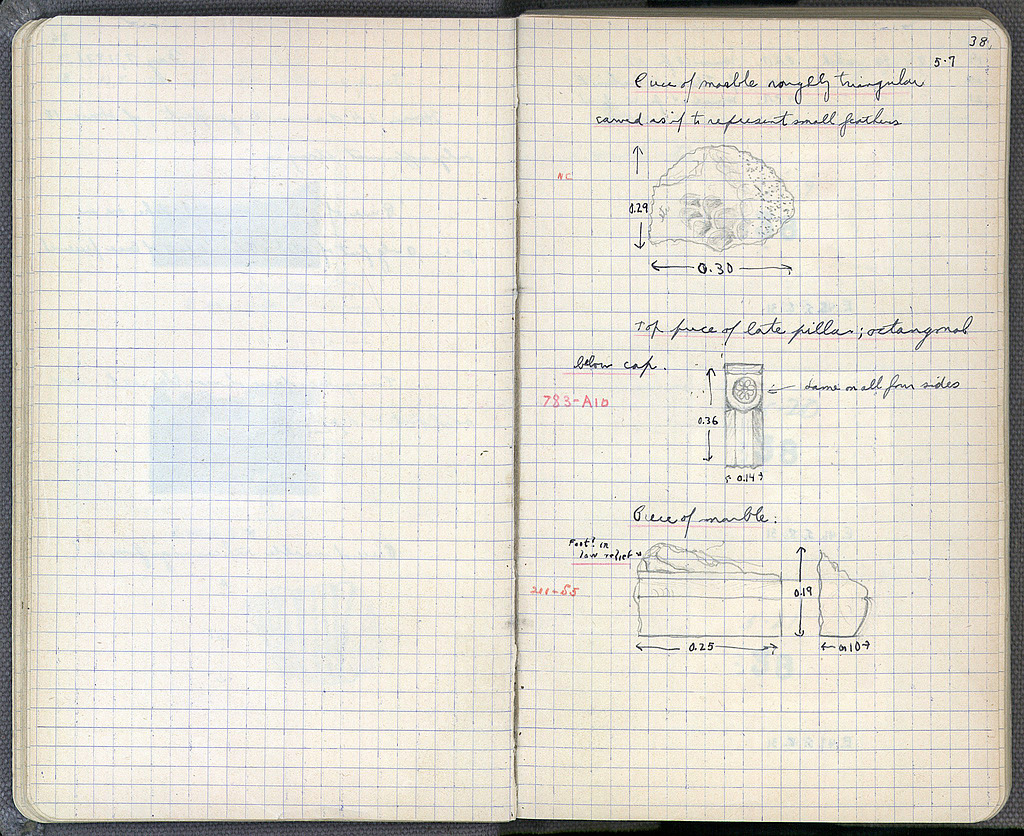 38
5.7
Piece of marble roughly triangular
carved as if to represent small feathers
NC
0.29
0.30
Top piece of late pillar; octangonal
below cap.
same on all four sides
783-A10
0.36
0.14
Piece of marble:
Foot? in
low relief
211-S5
0.19
0.25
0.10